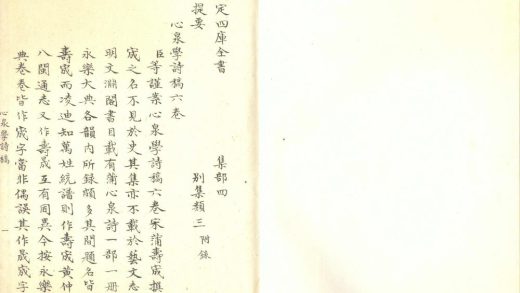 定四庫全書　集部四
提要　別集類三　附錄
心泉學詩稿六卷
臣等謹案心泉學詩稿六卷宋蒲壽宬撰
宬之名不見於史其集亦不載於藝文志
明文淵閣書目載有蒲心泉詩一部一冊
永樂大典各韻內所錄頗多其間題名皆
壽宬而凌迪知萬姓統譜則作壽宬黃仲
八閩通志又作壽晟互有同異今按永樂
典卷卷皆作宬字當非偶誤其作晟宬字
心泉學詩稿　一